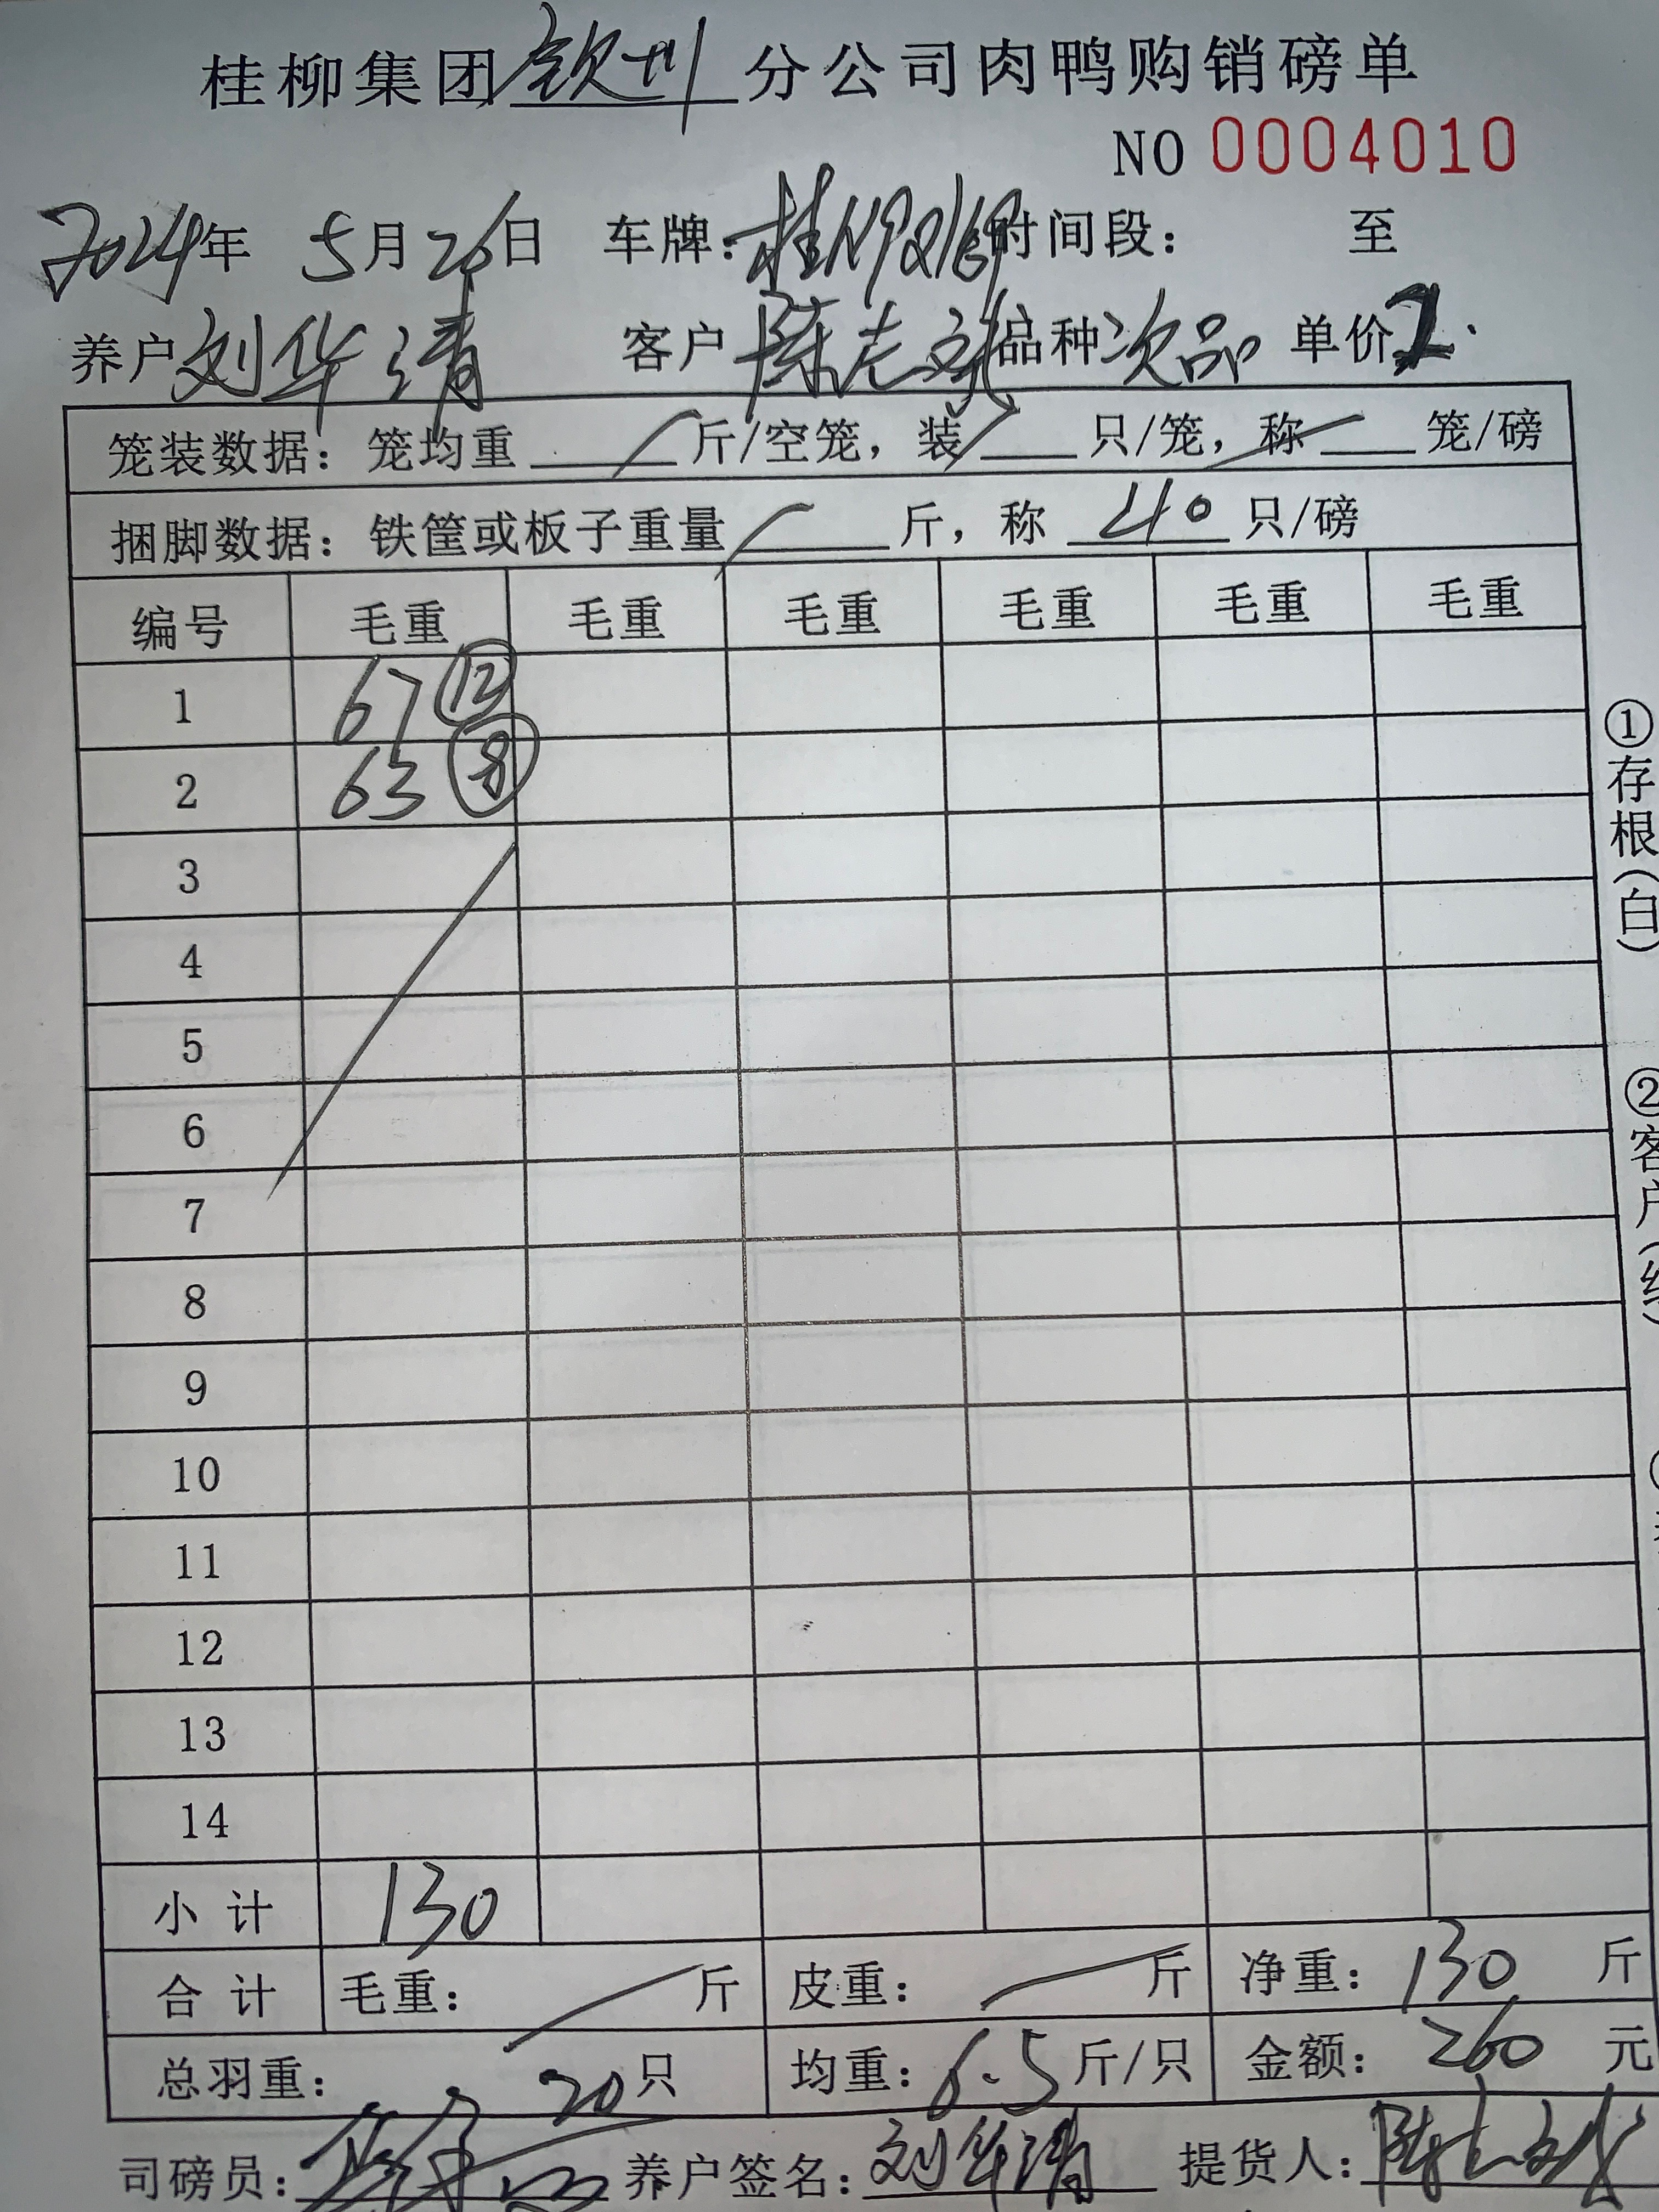 桂柳集团钦州分公司肉鸭购销磅单
NO 0004010
2024年 5月26日 车牌:桂N 时间段: 至
养户 刘华清 客户 陈 品种 次品 单价 2.
笼装数据: 笼均重 斤/空笼, 装 只/笼, 称 笼/磅
捆脚数据: 铁筐或板子重量 斤, 称 40 只/磅
编号 毛重 毛重 毛重 毛重 毛重 毛重
1 67 ⑫
2 63 ⑧
3
4
5
6
7
8
9
10
11
12
13
14
小计 130
合计 毛重: 斤 皮重: 斤 净重: 130 斤
总羽重: 20只 均重: 6.5斤/只 金额: 260 元
司磅员: 养户签名: 刘华清 提货人: 陈
①存根(白)
②客户(